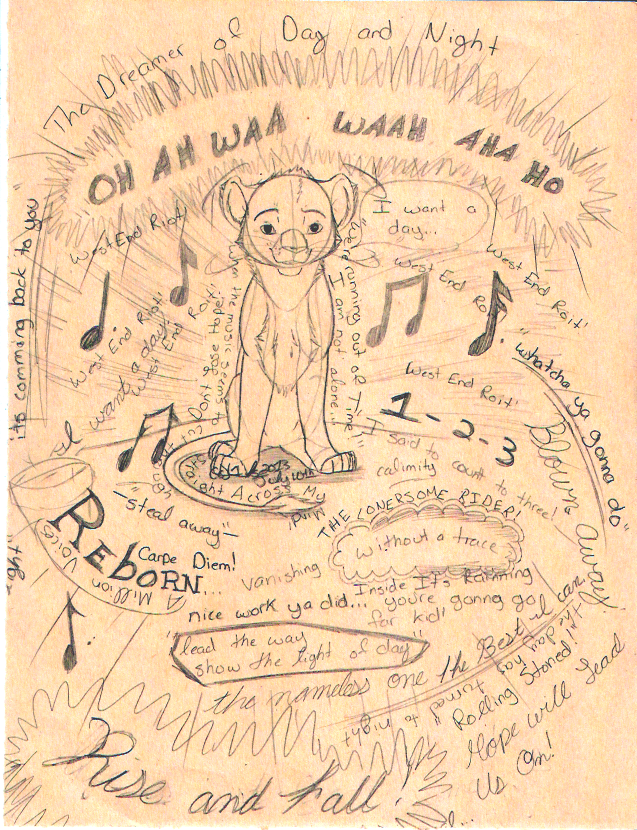 The Dreamer of Day and Night
OH AH WAA WAAH AHA HO
"its comming back to you"
I want a
day...
West End Riot!
West End Riot!
West End Rait!
West End Riot!
West End Rait!
West End Rait!
"were running out of Time!"
I am not alone...
Dont lose Hope!
the music
"whatcha ya gonna do"
I want a day!
1-2-3
I said to count to three!
calimity
Blown away
THE LONERSOME RIDER!
July 10th
2013
Right Across My
Mind!
-steal away-
REBORN...
Carpe Diem!
A Million Voices
vanishing
without a trace
Inside It's Raining
nice work ya did... you're gonna go
far kid!
"lead the way
show the light of day"
the nameless one
the Best I can
the day has turned to night
"Rolling Stoned!"
Hope will lead
Us On!
Rise and Fall!